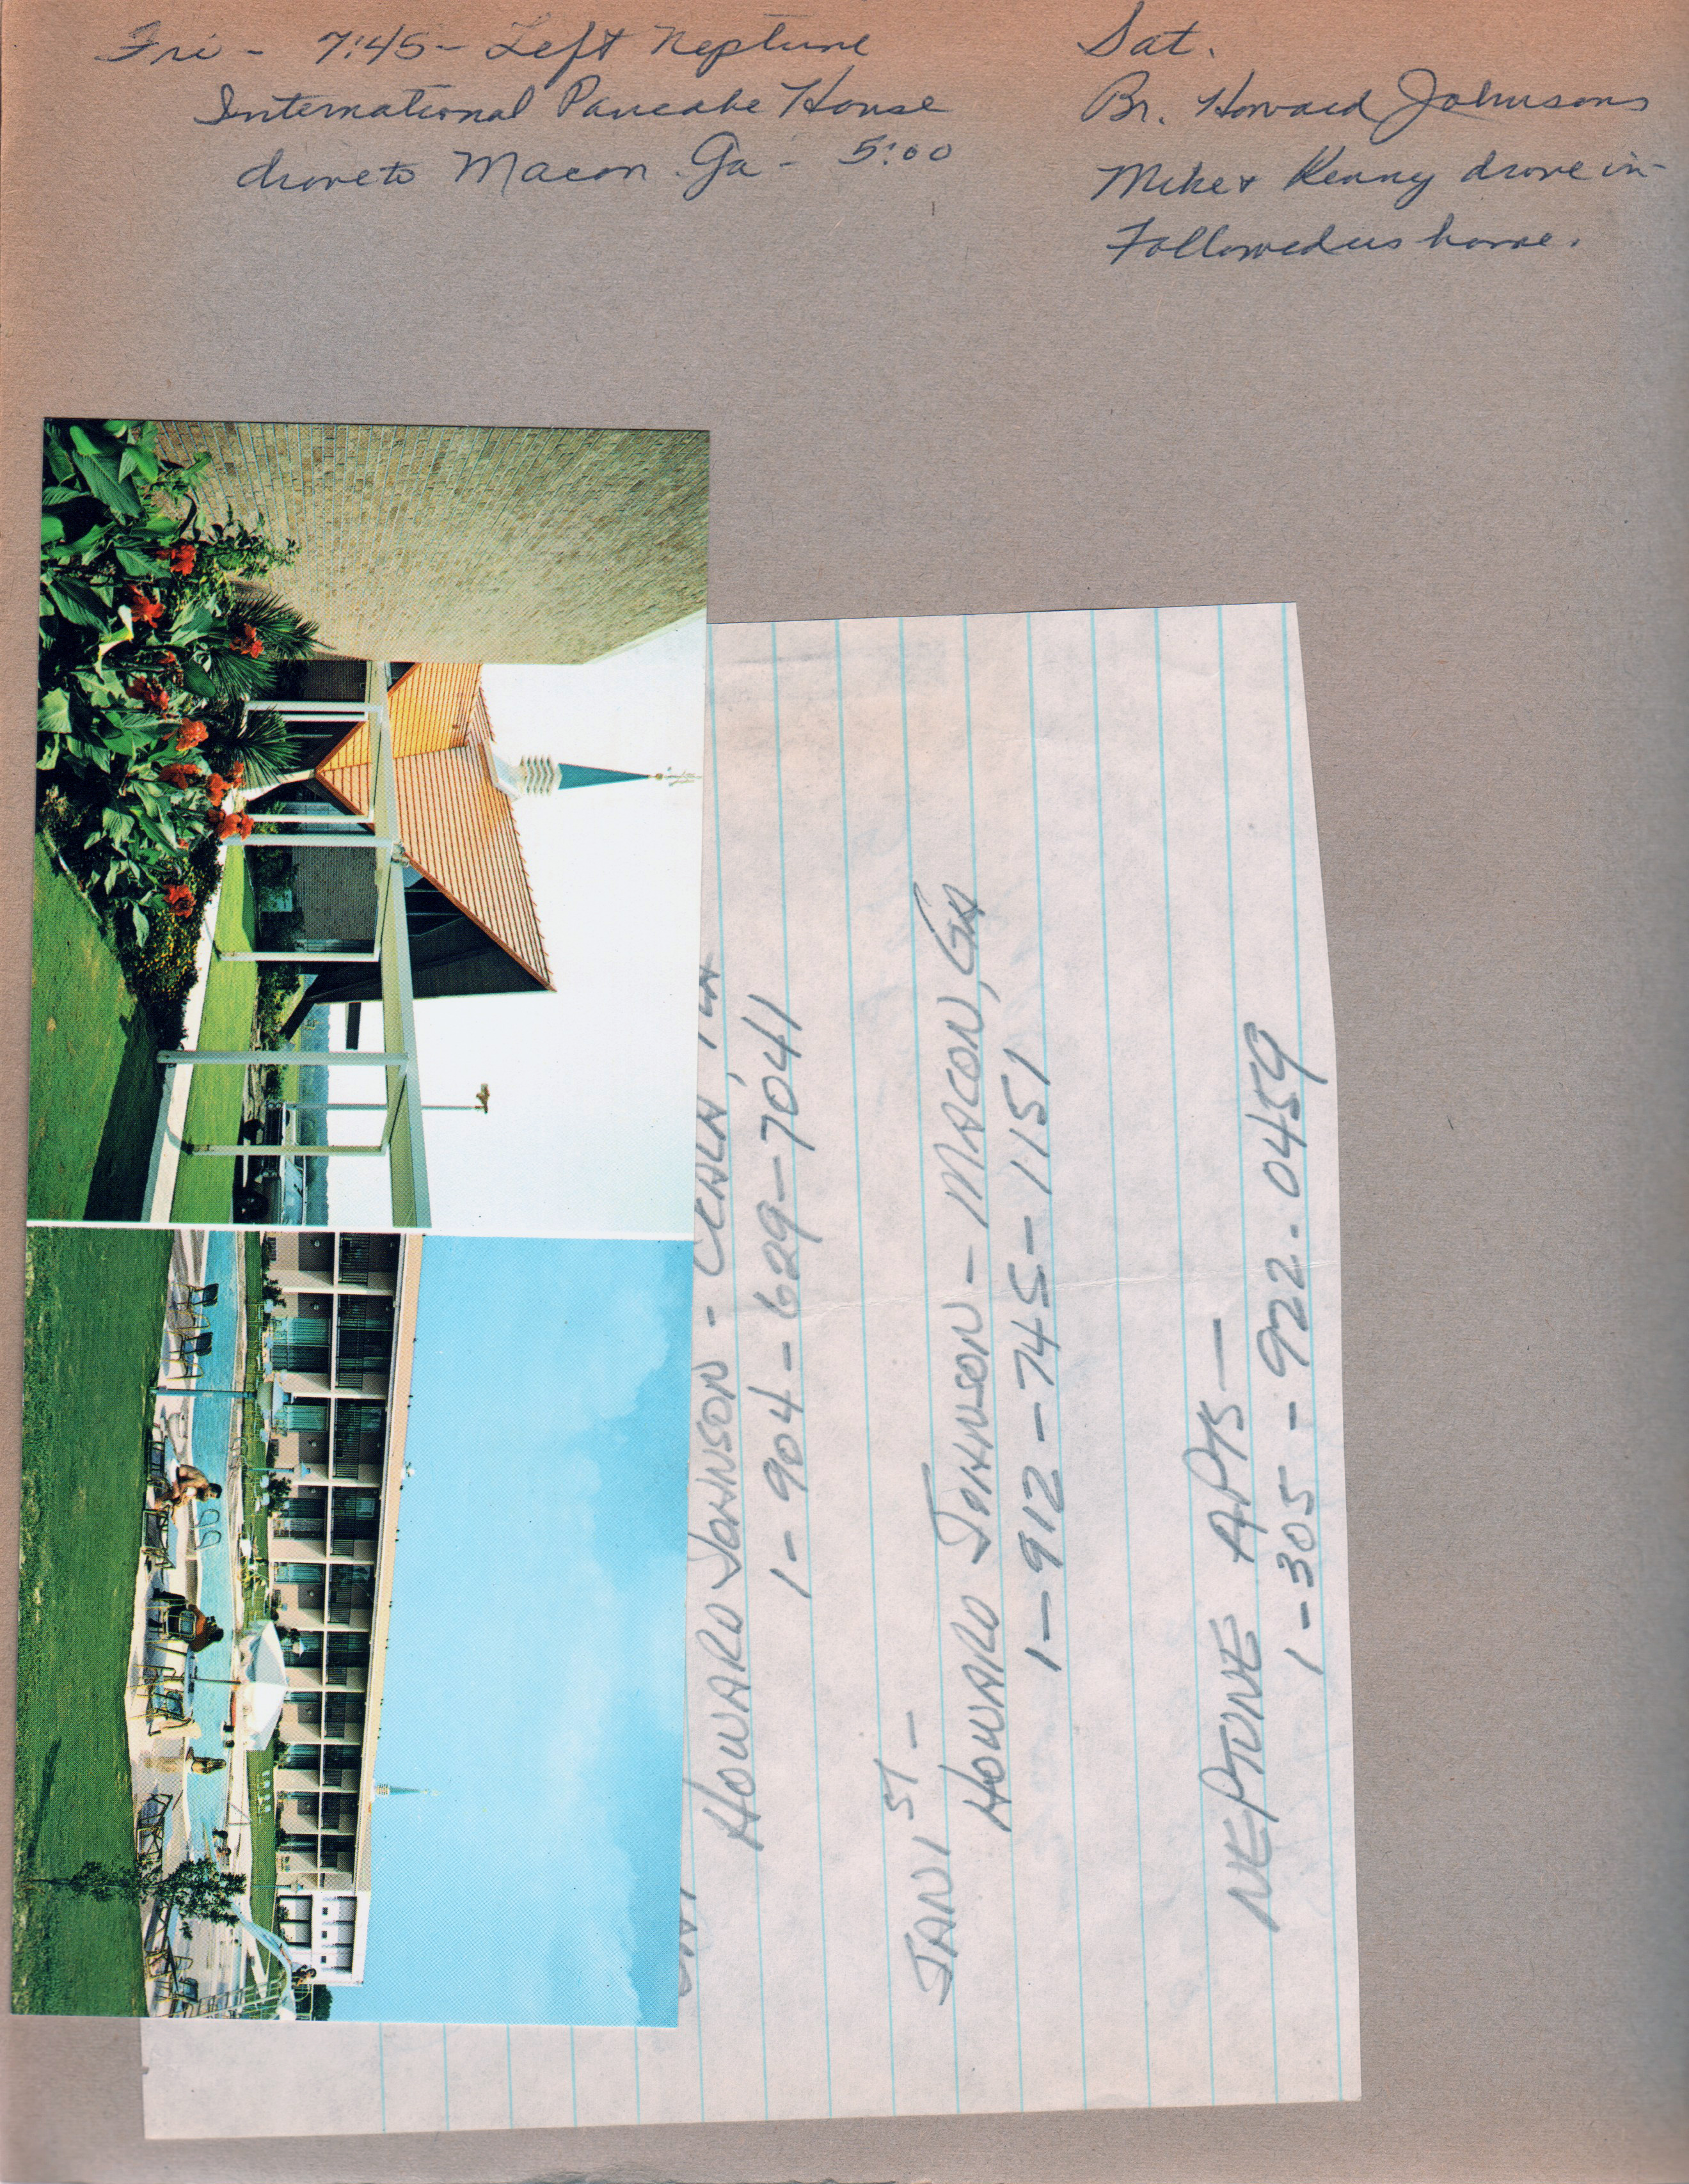 Fri - 7:45 - Left Neptune
International Pancake House
drove to Macon Ga - 5:00
Sat.
Br. Howard Johnsons
Mike & Kenny drove in -
Followed us home.
HOWARD JOHNSON - OCALA, FLA
1-904-629-7041
JAN 1ST -
HOWARD JOHNSON - MACON, GA
1-912-745-1151
NEPTUNE APTS -
1-305-922-0459